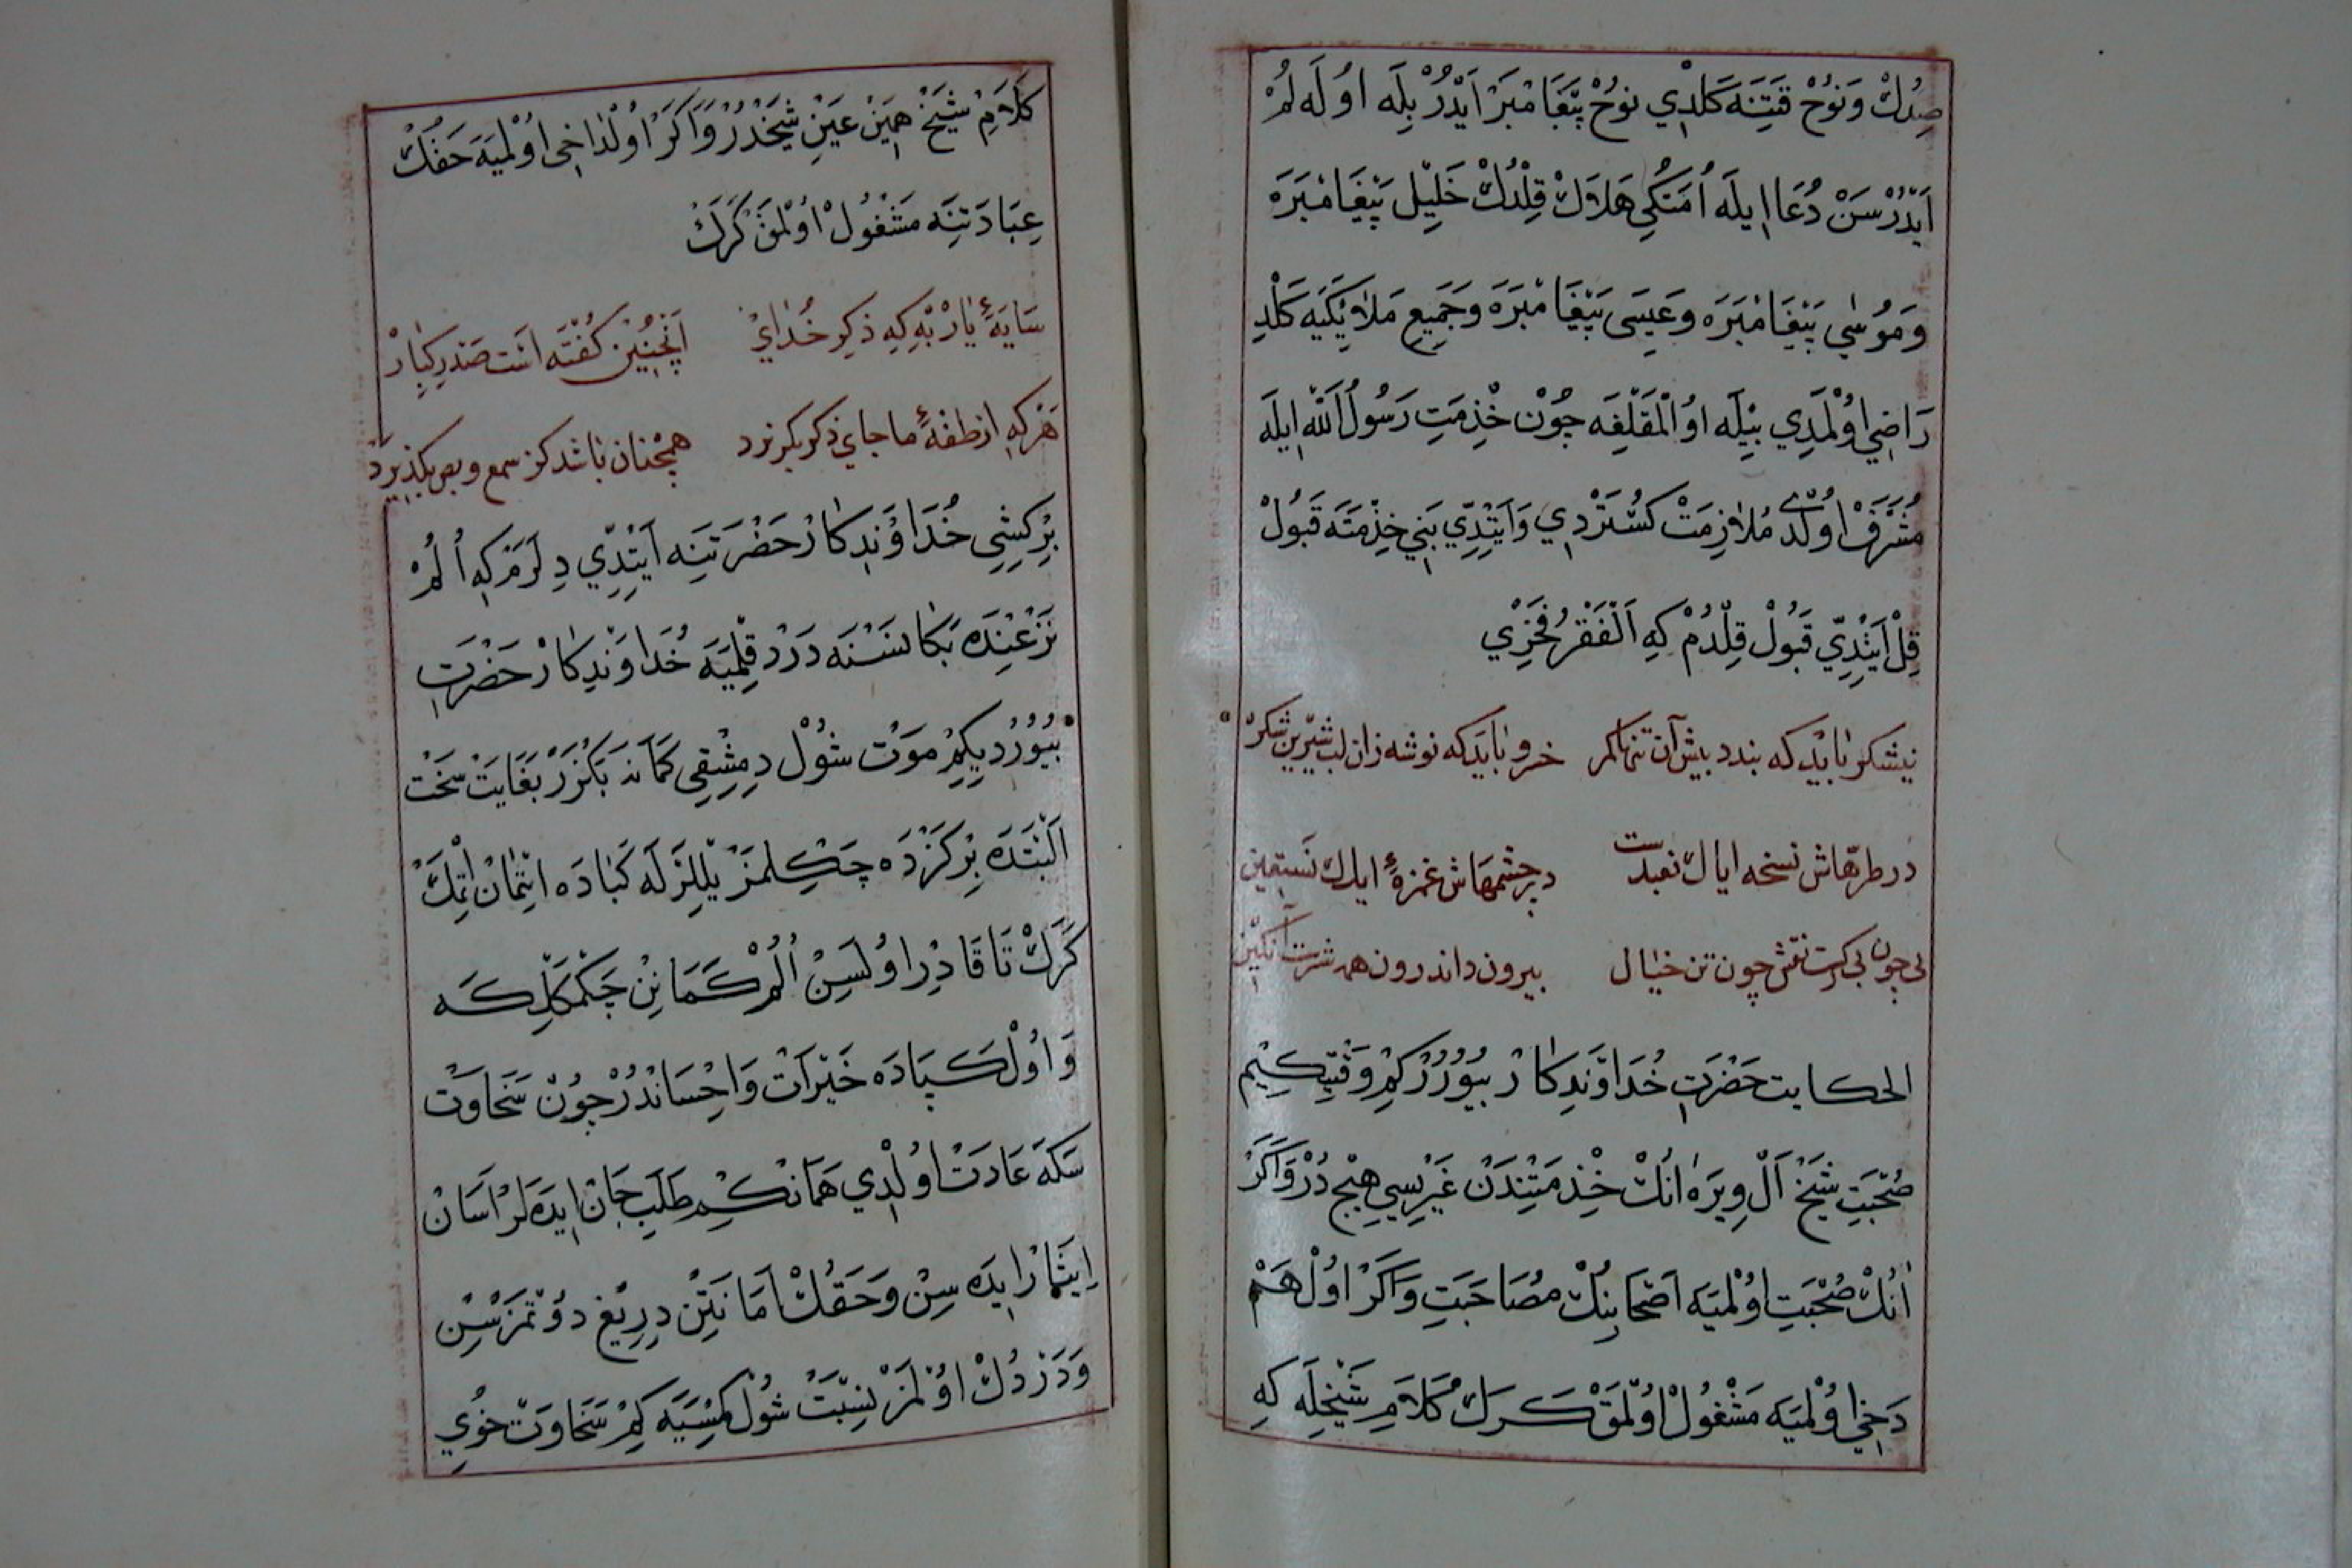 صِدُكْ وَنُوحْ قَتِنَه كَلْدِي نُوحْ پَيْغَامْبَرْ اَيْدُرْ بِلَه اُولَه لُمْ
اَيْدُرْ سَنْ دُعَا اِيلَه اُمَتُكِي هَلَاكْ قِلْدُكْ خَلِيلْ پَيْغَامْبَرَه
وَمُوسٰى پَيْغَامْبَرَه وَعِيسَى پَيْغَامْبَرَه وَجَمِيعِ مَلَائِكَيَه كَلْدِ
رَاضِي اُولْمَدِي بِيلَه اُولْمَقْلِغَه چُونْ خِذْمَتِ رَسُولُ اَللّٰه اِيلَه
مُشَرَّفْ اُولْدِّي مُلَازِمَتْ كُسْتَرْدِي وَاَيِتْدِّي بَنِي خِذْمَتَه قَبُولْ
قِلْ اَيِتْدِّي قَبُولْ قِلْدُمْ كِه اَلْفَقْرُ فَخْرِي
نيشكر بايد كه بندد پيش آن تنها كمر خرو بايد كه نوشه زان لب شيرين شكر
در طرهاش نسخه اياك نعبدست در چشمهاش غمزهٔ اياك نستعين
بى چون بى كرت نقش چون تن خيال بيرون و اندرون همه شرست انكبين
الحكايت حَضْرَتِ خُدَاوَنْدِكَارْ بُيُورُرْ كِمْ وَقْتِيكِيمْ
صُحْبَتِ شَيْخْ اَلْ وِيرَه اَنُكْ خِذْمَتِنْدَنْ غَيْرِيسِي هِيچْ دُرْ وَاَكَرْ
اَنُكْ صُحْبَتِ اُولْمَيَه اَصْحَابِنُكْ مُصَاحَبَتِ وَاَكَرْ اُولْ هَمْ
دَخِي اُولْمَيَه مَشْغُولْ اُولْمَقْ كَرَكْ كَلَامِ شَيْخِلَه كِه
كَلَامِ شَيْخْ هَمِينْ عَيْنِ شَيْخْدُرْ وَاَكَرْ اُولْدَاخِي اُولْمَيَه حَقُكْ
عِبَادَتِنَه مَشْغُولْ اُولْمَقْ كَرَكْ
سَايَهٔ يَارْ بِه كِه ذِكرِ خُدَايْ اَنْچِنِينْ كُفْتَه اَسْت صَدْرِ كِبَارْ
هَر كه از طفهٔ ما جاى ذكر بكريزد همچنان باشد كز سمع و بصر بكذيرد
بِرْ كِشِي خُدَاوَنْدِكَارْ حَضْرَتِنَه اَيِتْدِّي دِلَرَمْ كِه اُلُمْ
نَزْعِنْدَه بَكَا نَسْنَه دَرْد قِلْمَيَه خُدَاوَنْدِكَارْ حَضْرَتِ
بُيُورْدِيكِمْ مَوْتْ شُولْ دِمِشْقِي كَمَانَه بَكْزَرْ بِغَايَتْ سَخْتْ
اَلْبَتَّه بِرْ كَزْدَه چَكِلْمَزْ يِلْلَرْلَه كَبَادَه اِيتْمَانْ اِتْمَكْ
كَرَكْ تَا قَادِرْ اُولَسِنْ اُلُمْ كَمَانِنْ چَكْمَكْلِكَه
وَاُولْ كَپَادَه خَيْرَاتْ وَاِحْسَانْدُرْ چُونْ سَخَاوَتْ
سَكَه عَادَتْ اُولْدِي هَمَانْكِمْ طَلَبِ جَانْ اِيدَه لَرْ اَسَانْ
اِيثَارْ اِيدَه سِنْ وَحَقُكْ اَمَانَتِنْ دِرِيغْ دُوتْمَزْسِنْ
وَدَرْدُكْ اُولْمَزْ نِسْبَتْ شُولْ كِمْسَيَه كِمْ سَخَاوَتْ خُويِ